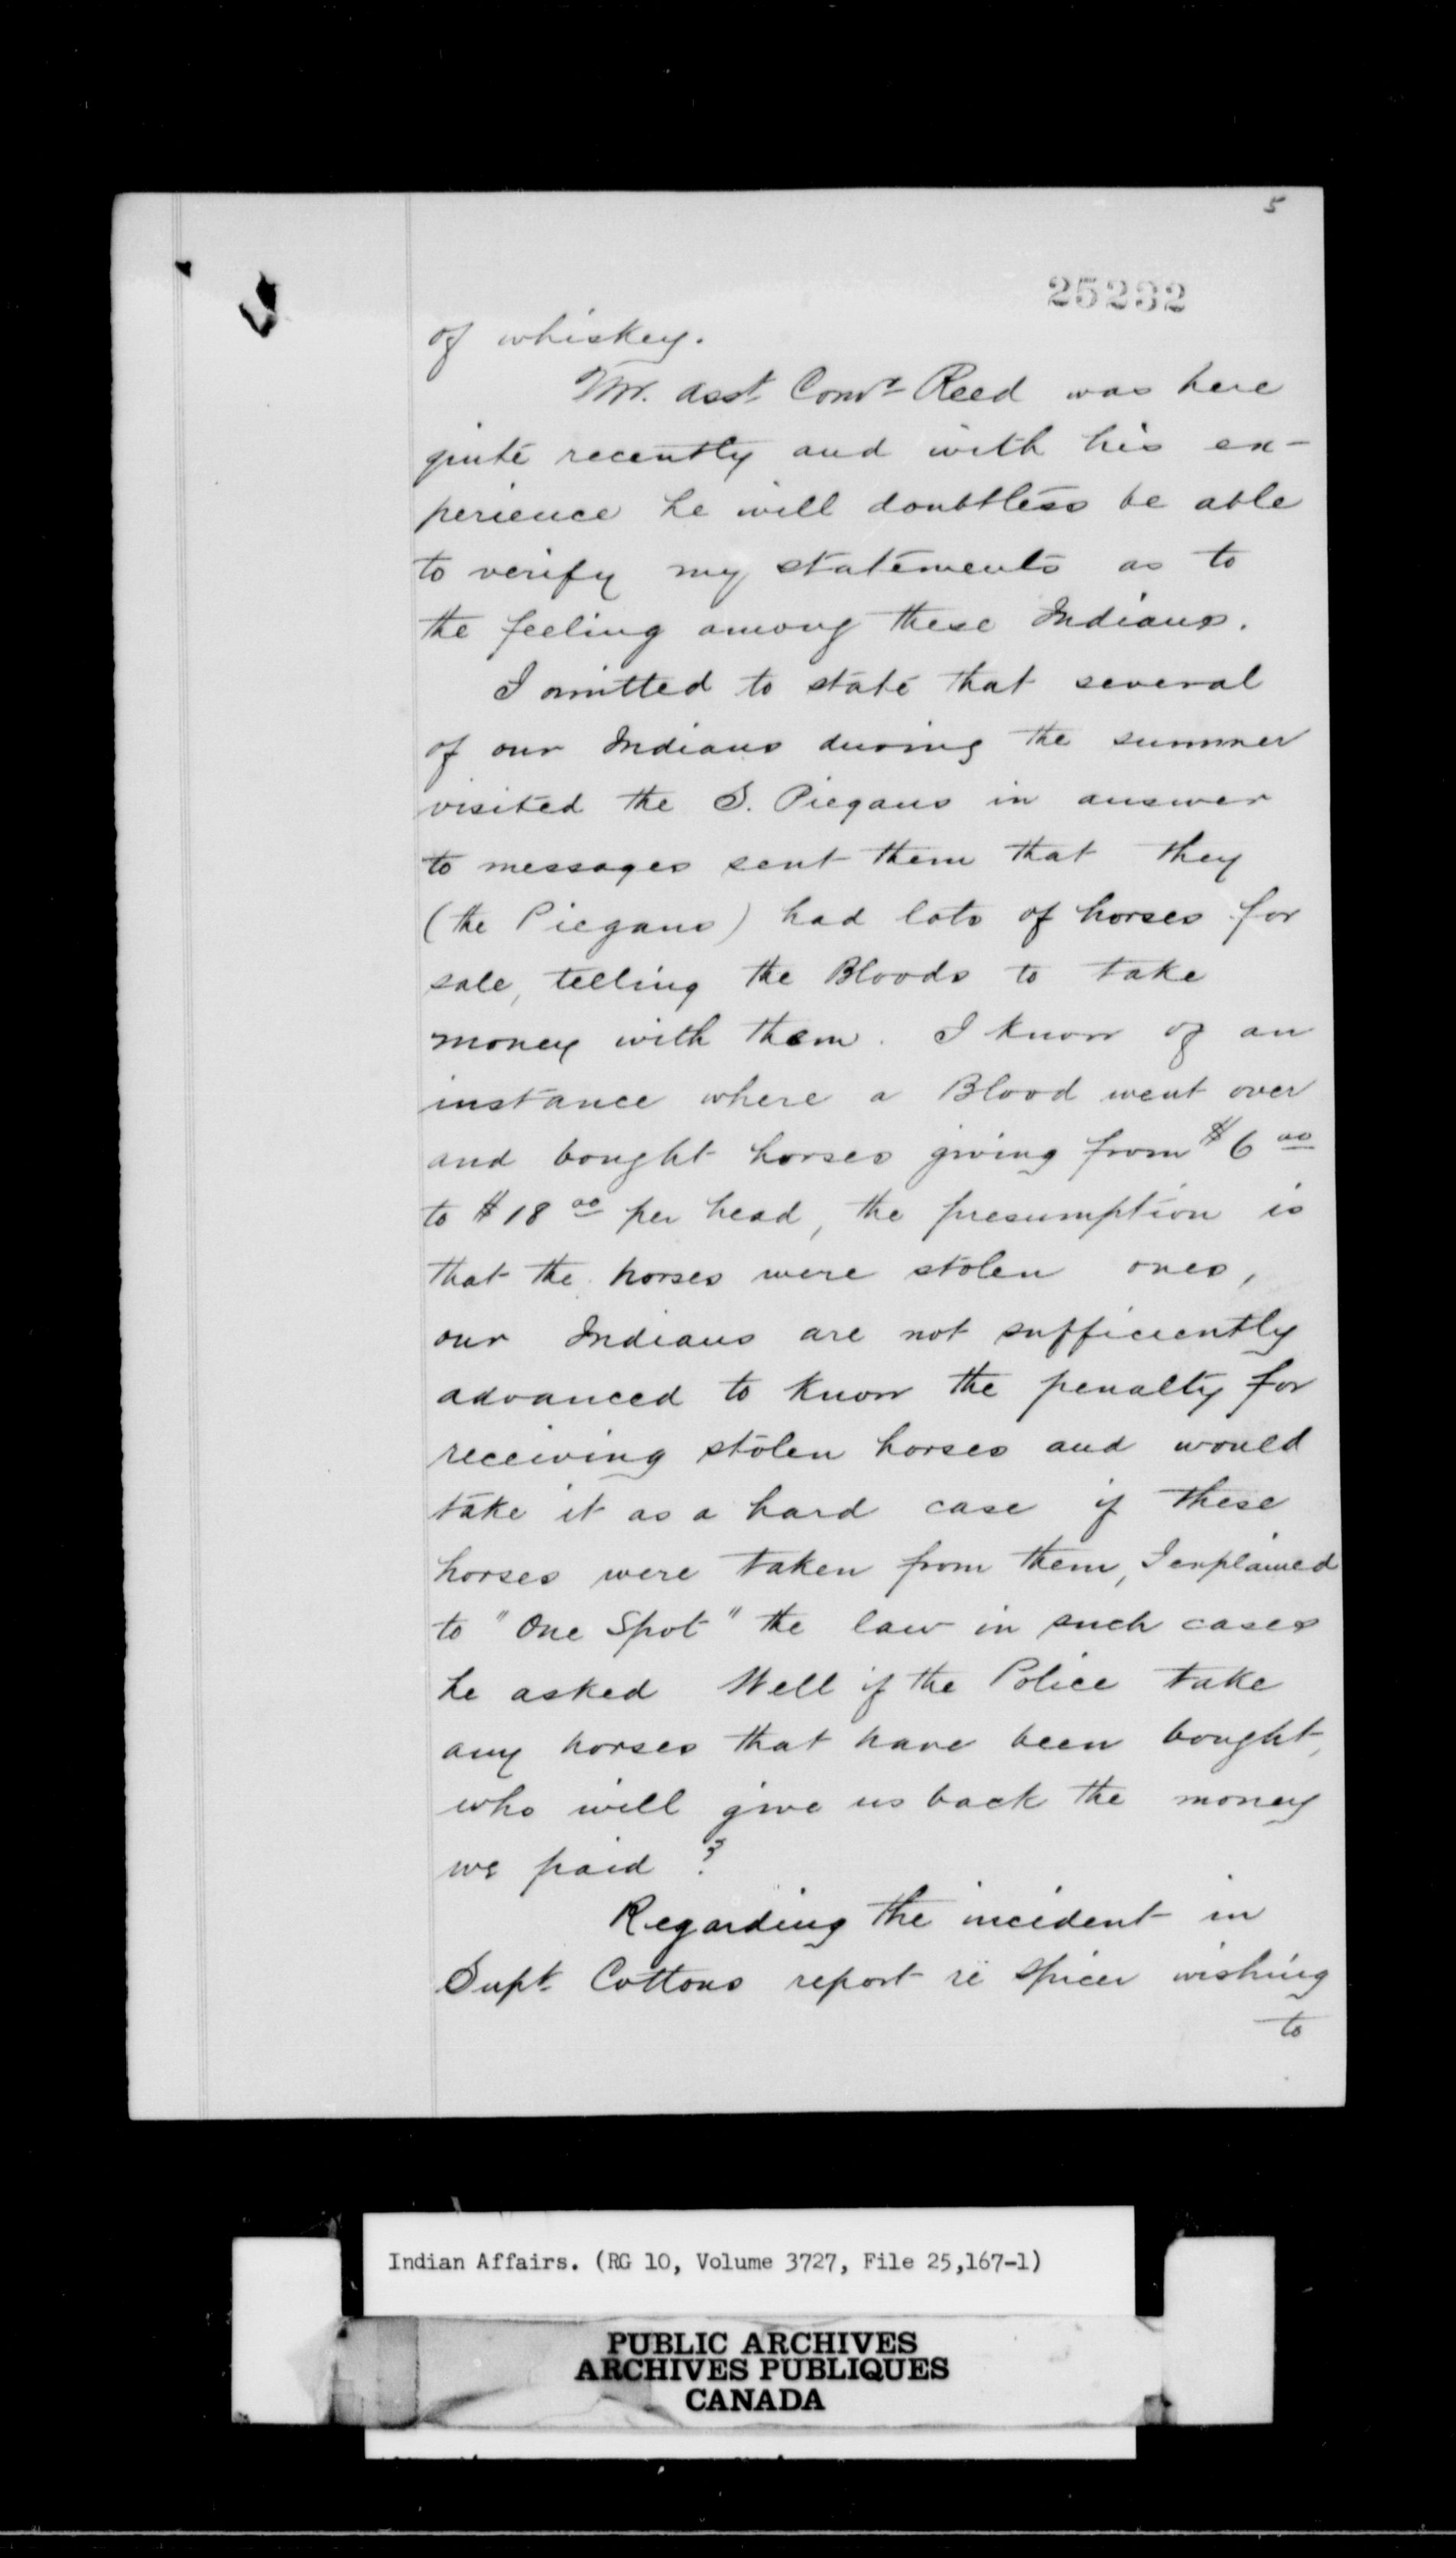 5
25232
of whiskey.
Mr. Asst Comr Reed was here
quite recently and with his ex-
perience he will doubtless be able
to verify my statements as to
the feeling among these Indians.
I omitted to state that several
of our Indians during the summer
visited the S. Piegans in answer
to messages sent them that they
(the Piegans) had lots of horses for
sale, telling the Bloods to take
money with them. I know of an
instance where a Blood went over
and bought horses giving from $6 00
to $18 00 per head, the presumption is
that the horses were stolen ones,
our Indians are not sufficiently
advanced to know the penalty for
receiving stolen horses and would
take it as a hard case if these
horses were taken from them, I explained
to "One Spot" the law in such cases
he asked Well if the Police take
any horses that have been bought,
who will give us back the money
we paid?
Regarding the incident in
Supt. Cottons report re Spicer wishing
to
Indian Affairs. (RG 10, Volume 3727, File 25,167-1)
PUBLIC ARCHIVES
ARCHIVES PUBLIQUES
CANADA